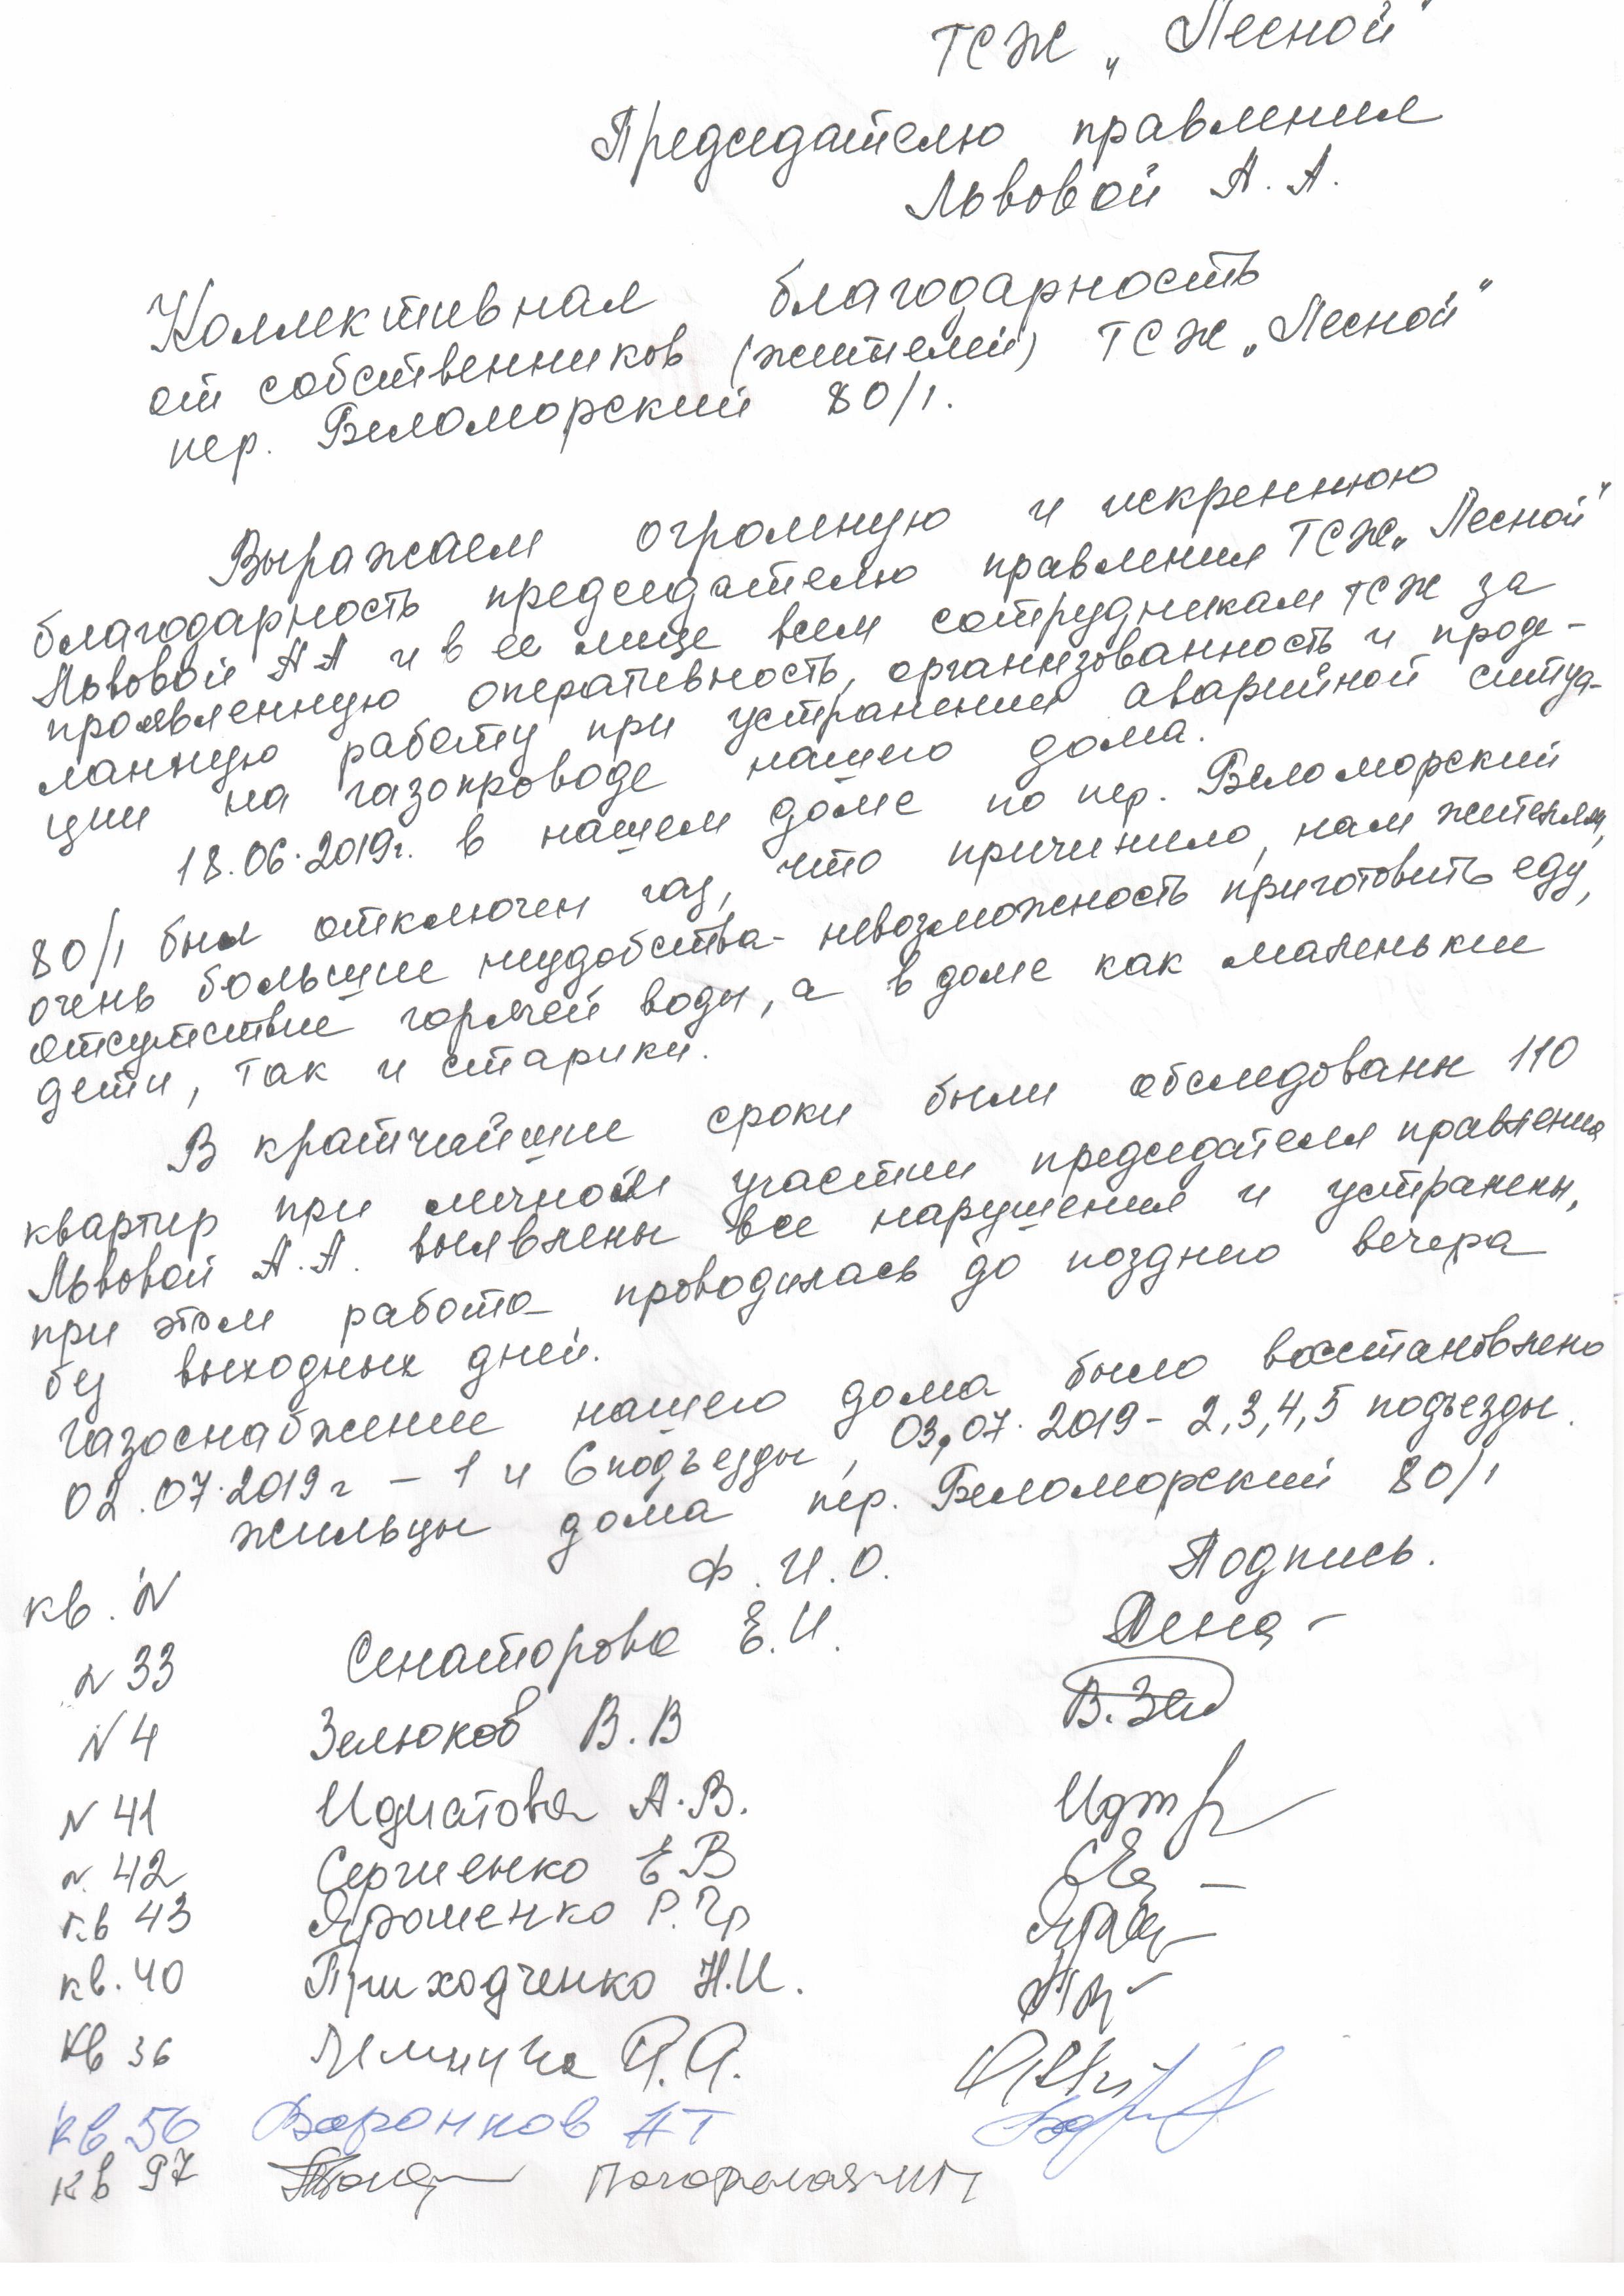 ТСЖ „Лесной"
Председателю правления
Львовой А. А.
Коллективная благодарность
от собственников (жителей) ТСЖ „Лесной"
пер. Беломорский 80/1.
Выражаем огромную и искреннюю
благодарность председателю правления ТСЖ „Лесной"
Львовой А А и в ее лице всем сотрудникам ТСЖ за
проявленную оперативность, организованность и проде-
ланную работу при устранении аварийной ситуа-
ции на газопроводе нашего дома.
18.06.2019г. в нашем доме по пер. Беломорский
80/1 был отключен газ, что причинило, нам жителям,
очень большие неудобства- невозможность приготовить еду,
отсутствие горячей воды, а в доме как маленькие
дети, так и старики.
В кратчайшие сроки были обследованы 110
квартир при личном участии председателя правления
Львовой А.А. выявлены все нарушения и устранены,
при этом работа проводилась до позднего вечера
без выходных дней.
Газоснабжение нашего дома было восстановлено
02.07.2019г – 1 и 6 подъезды, 03.07.2019- 2,3,4,5 подъезды.
жильцы дома пер. Беломорский 80/1
кв. N Ф.И.О. Подпись.
N 33 Сенаторова Е.И.
N 4 Зелюков В.В В.Зел
N 41 Идиатова А.В.
N 42 Сергиенко Е В
кв 43 Ярошенко Р.Гр
кв. 40 Приходченко Н.И.
кв 36
кв 56 Воронков АТ
кв 97